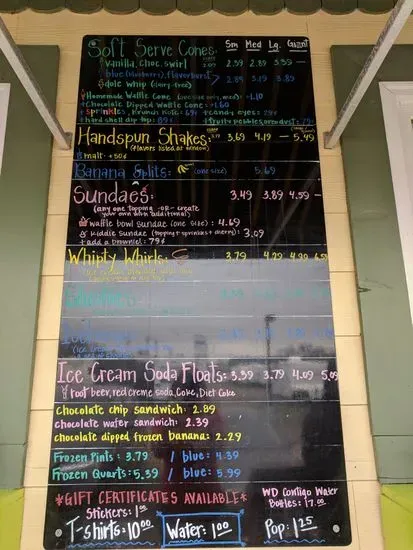 Soft Serve Cones: Sm Med Lg. Giant
vanilla, choc, swirl 2.59 2.89 3.39 —
blue (blueberry), flavorburst 2.89 3.19 3.89
dole whip (dairy-free)
Homemade Waffle Cone +1.10
+Chocolate Dipped Waffle Cone - +1.60
+sprinkles, 69¢ +candy eyes: 29¢
+hard shell dip top: 89¢ +fruity pebbles
Handspun Shakes: 3.69 4.19 — 5.49
(flavors listed at window)
malt. +50¢
Banana Splits: (one size) 5.69
Sundaes: 3.49 3.89 4.59 —
(any one topping -or- create
your own with additional)
waffle bowl sundae (one size): 4.69
kiddie sundae (topping + sprinkles + cherry): 3.09
+add a brownie!: 79¢
Whipty Whirls: 3.79 4.29 4.99
Ice Cream Soda Floats: 3.39 3.79 4.09 5.09
root beer, red creme soda, Coke, Diet Coke
chocolate chip sandwich: 2.89
chocolate wafer sandwich: 2.39
chocolate dipped frozen banana: 2.29
Frozen Pints: 3.79 / blue: 4.39
Frozen Quarts: 5.39 / blue: 5.99
*GIFT CERTIFICATES AVAILABLE*
Stickers: 1.00
WD Contigo Water
Bottles: 17.00
T-shirts: 10.00 Water: 1.00 Pop: 1.25